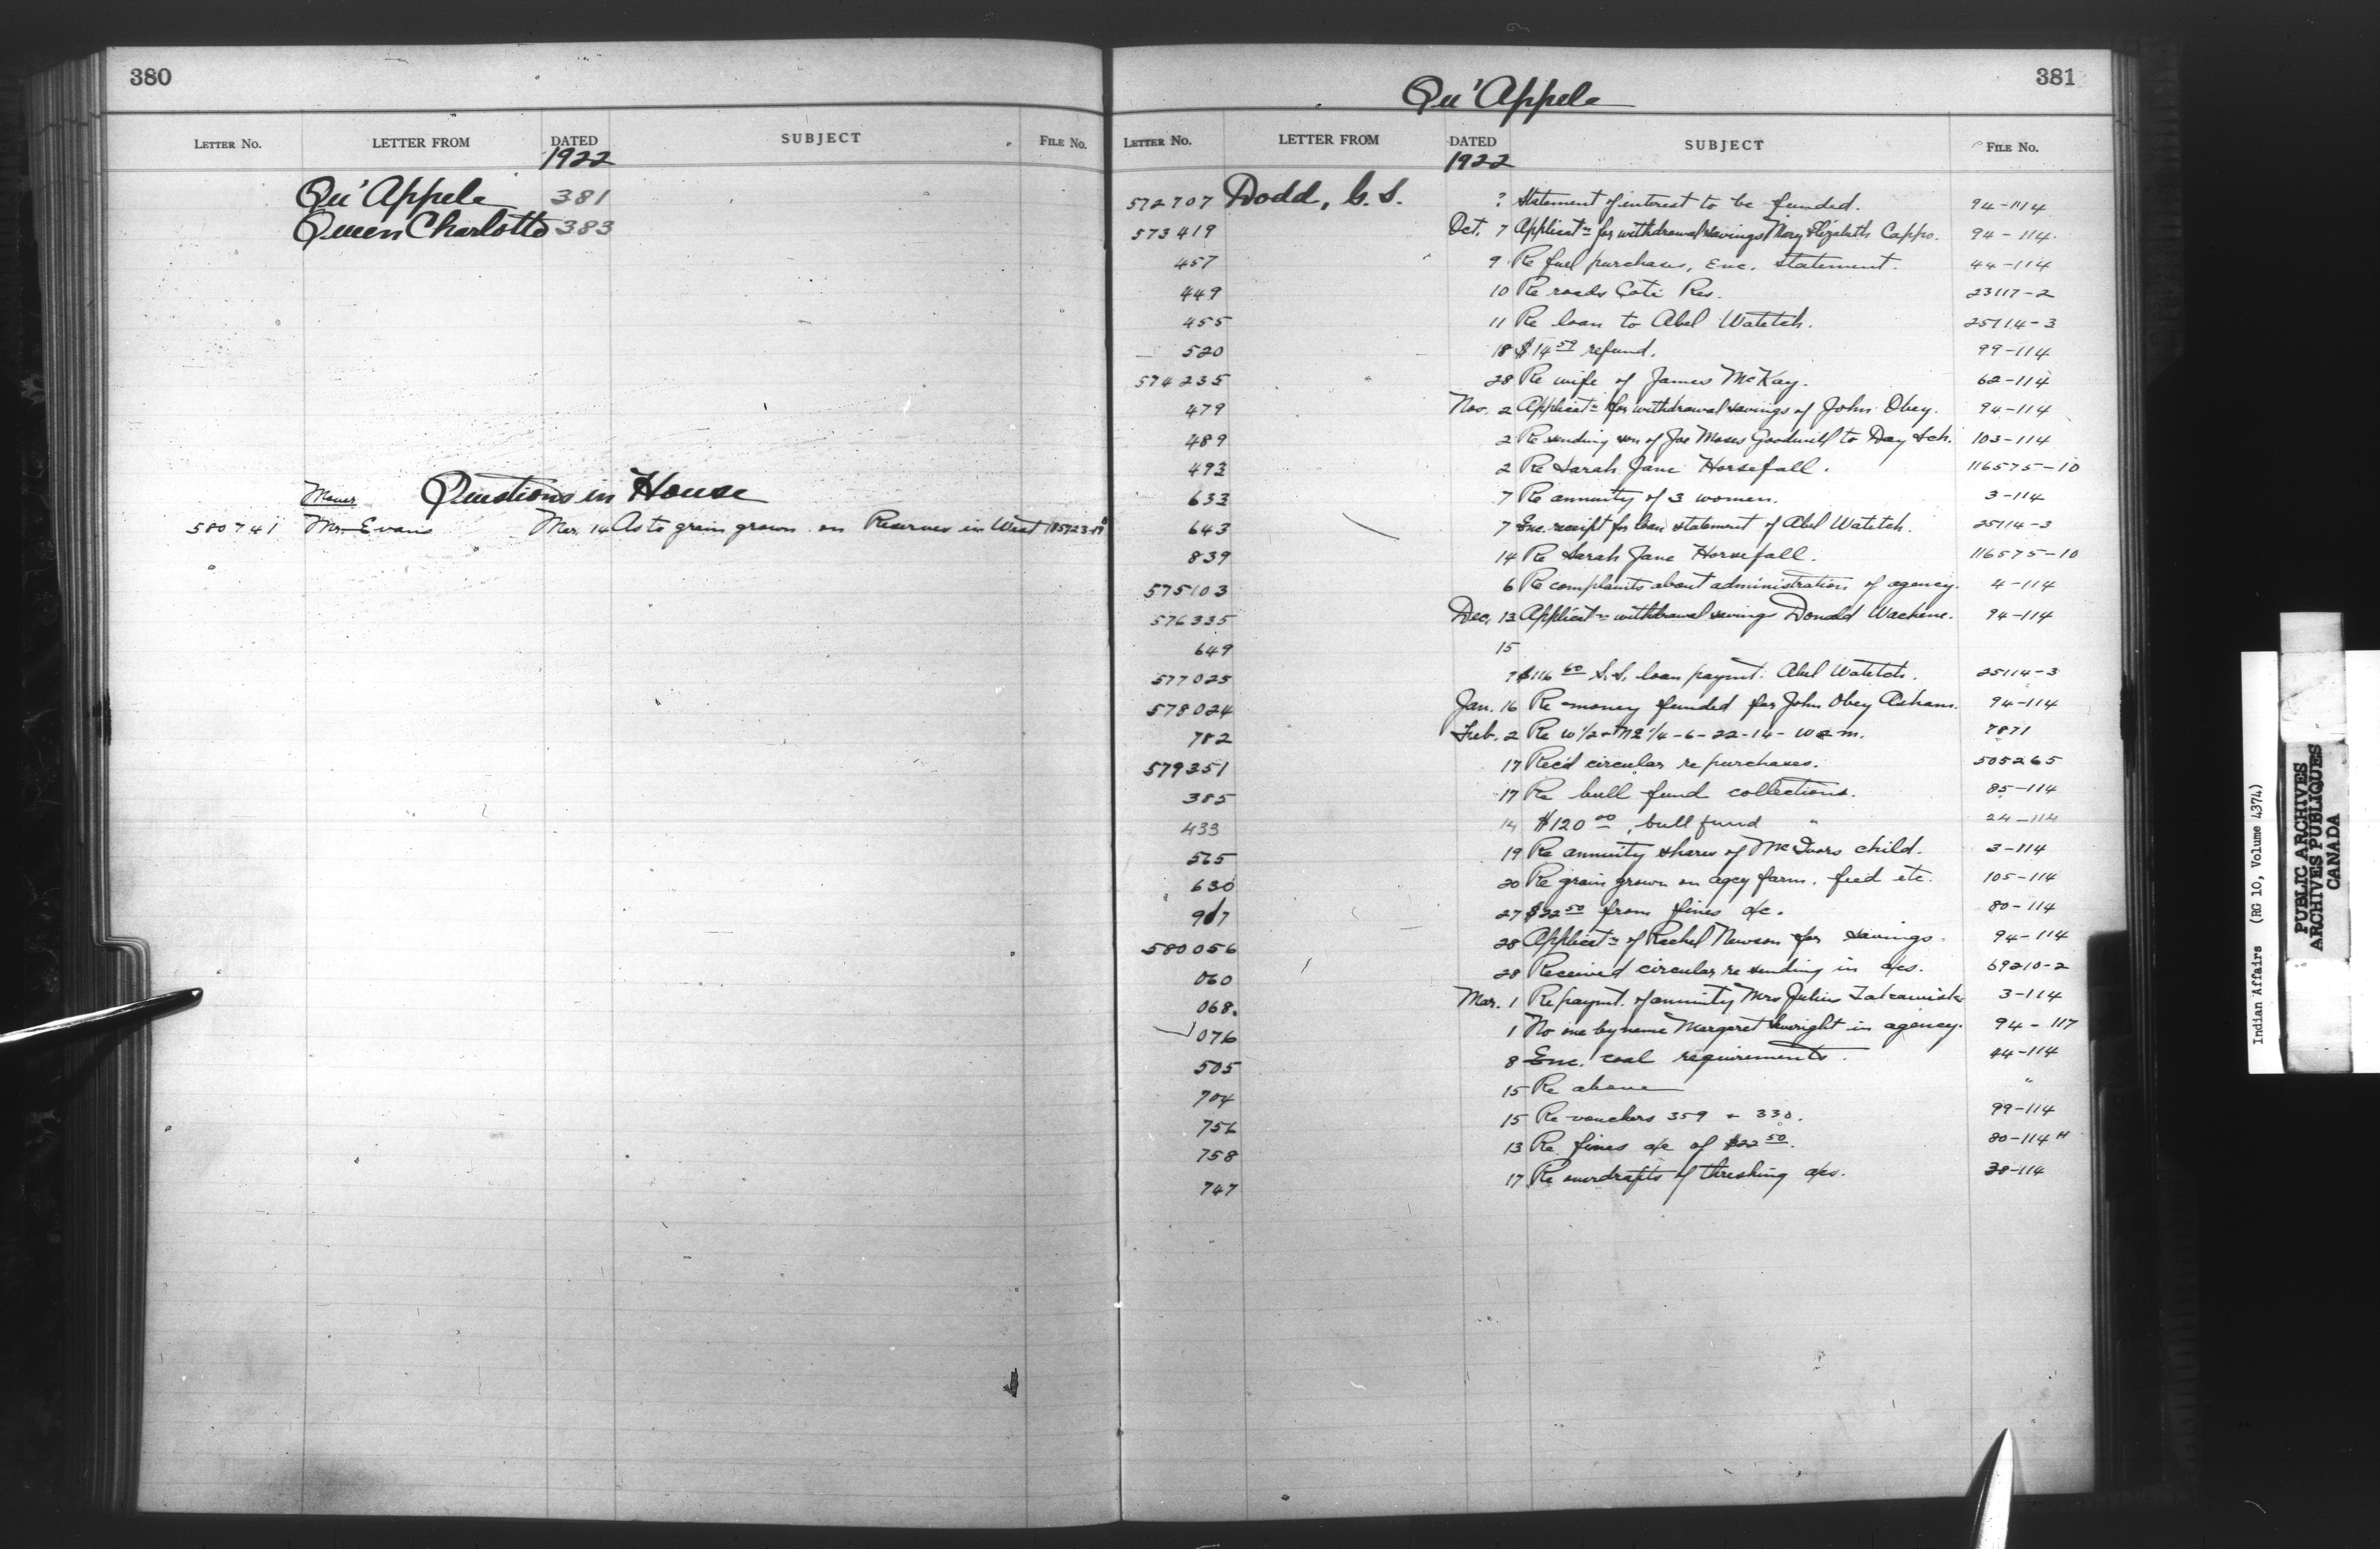 380
LETTER No. LETTER FROM DATED SUBJECT FILE No.
1922
Qu'Appele 381
Queen Charlotte 383
Questions in House
Mover
580741 Mr. Evans Mar. 14 As to grain grown on Reserves in West
381
Qu'Appele
LETTER No. LETTER FROM DATED SUBJECT FILE No.
1922
572707 Dodd, G. S. ? Statement of interest to be funded. 94-114
573419 Oct. 7 Applicatn for withdrawal savings Mary Elizabeth Cappo. 94-114.
457 9 Re fuel purchases, Enc. statement. 44-114
449 10 Re roads Coté Res. 23117-2
455 11 Re loan to Abel Watetch. 25114-3
520 18 $14 59 refund. 99-114
574235 28 Re wife of James McKay. 62-114
479 Nov. 2 Applicatn for withdrawal savings of John Obey. 94-114
489 2 Re sending son of Joe Moses Goodwill to Day Sch. 103-114
493 2 Re Sarah Jane Horsefall. 116575-10
633 7 Re annuity of 3 women. 3-114
643 7 Enc. receipt for loan statement of Abel Watetch. 25114-3
839 14 Re Sarah Jane Horsefall. 116575-10
575103 6 Re complaints about administration of agency. 4-114
576335 Dec. 13 Applicatn withdrawal savings Donald Wachene. 94-114
649 15
577025 7 $116 60 S.S. loan paymt. Abel Watetch. 25114-3
578024 Jan. 16 Re money funded for John Obey Asham. 94-114
782 Feb. 2 Re W 1/2 + NE 1/4-6-22-14-W2m. 7871
579351 17 Rec'd circular re purchases. 505265
385 17 Re bull fund collections. 85-114
433 14 $120 00, bull fund " 24-114
565 19 Re annuity shares of McIvors child. 3-114
630 20 Re grain grown on agcy farm. feed etc. 105-114
917 27 $22 50 from fines a/c. 80-114
580056 28 Applicatn of Rachel Newson for savings. 94-114
060 28 Received circular re sending in a/cs. 69210-2
068. Mar. 1 Re paymt. of annuity Mrs Julius 3-114
076 1 No one by name Margaret in agency. 94-117
505 8 Enc. coal requirements. 44-114
704 15 Re above "
756 15 Re vouchers 359 + 330. 99-114
758 13 Re fines a/c of $22 50. 80-114 H
747 17 Re overdrafts of threshing a/cs. 38-114
Indian Affairs (RG 10, Volume 4374)
PUBLIC ARCHIVES
ARCHIVES PUBLIQUES
CANADA